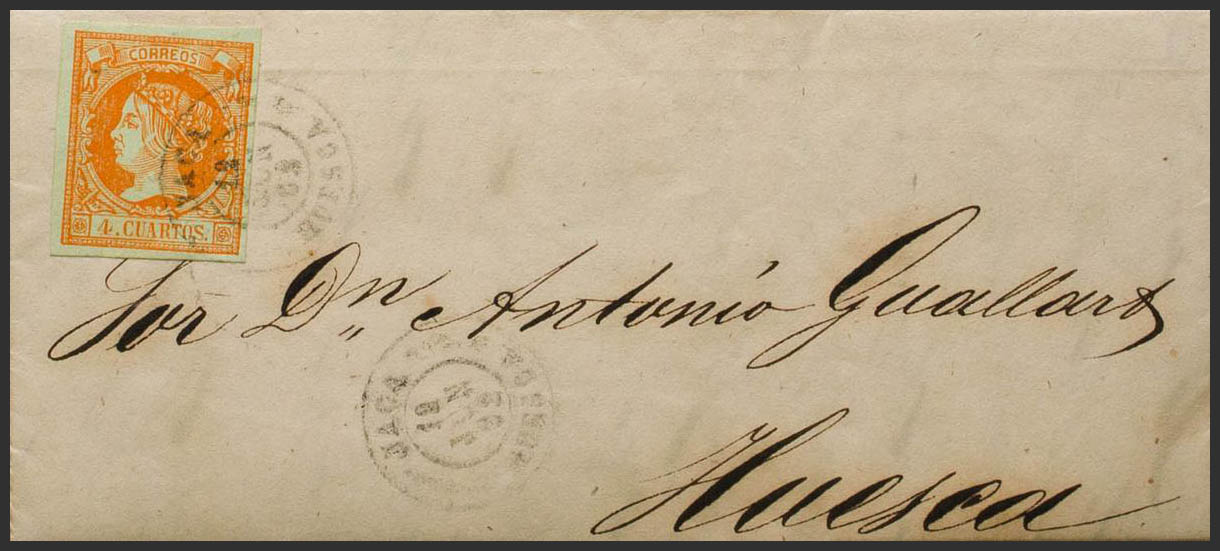 CORREOS
4. CUARTOS.
JACA HUESCA
Sor Dn Antonio Guallart
JACA HUESCA
Huesca